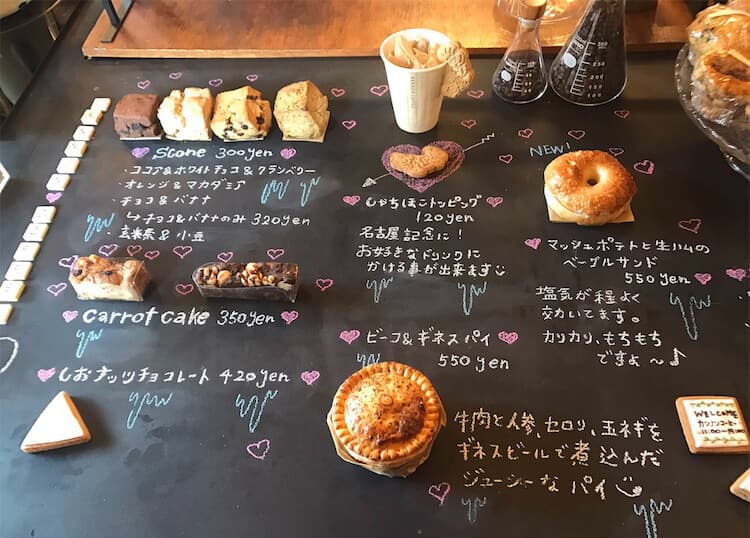 Scone 300yen
・ココア&ホワイトチョコ&クランベリー
・オレンジ&マカダミア
・チョコ&バナナ
↳チョコ&バナナのみ 320yen
・玄米茶&小豆
Carrot cake 350yen
しおナッツチョコレート 420yen
しゃちほこトッピング
120yen
名古屋記念に!
お好きなドリンクに
かける事が出来ます
ビーフ&ギネスパイ
550yen
牛肉と人参、セロリ、玉ネギを
ギネスビールで煮込んだ
ジューシーなパイ
NEW!
マッシュポテトと生ハムの
ベーグルサンド
550yen
塩気が程よく
効いてます。
カリカリ、もちもち
ですよ〜♪
WELCOME